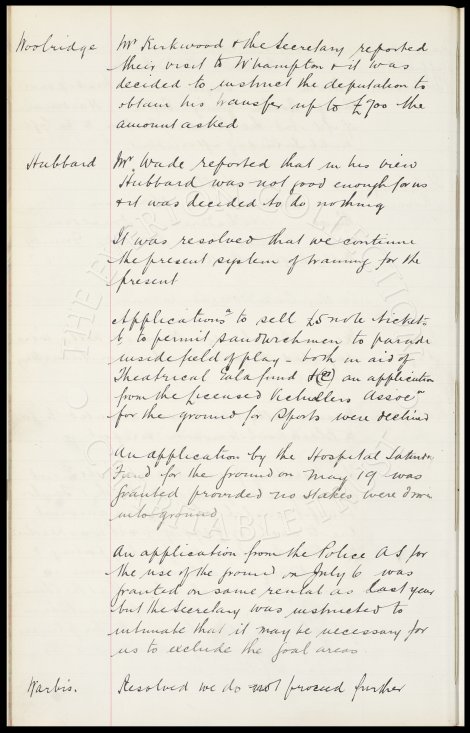 Woolridge Mr Kirkwood & the Secretary reported
their visit to W'hampton & it was
decided to instruct the deputation to
obtain his transfer up to £700 the
amount asked
Hubbard Mr Wade reported that in his view
Hubbard was not good enough for us
& it was decided to do nothing
It was resolved that we continue
the present system of training for the
present
Applications to sell £5 note tickets
& to permit sandwichmen to parade
inside field of play - both in aid of
Theatrical Gala fund & (2) an application
from the Licensed Victuallers Assocn
for the ground for Sports were declined
An application by the Hospital Saturday
Fund for the ground on May 19 was
granted provided no stakes were driven
into ground
An application from the Police A S for
the use of the ground on July 6 was
granted on same rental as last year
but the Secretary was instructed to
intimate that it may be necessary for
us to exclude the goal areas
Warbis. Resolved we do not proceed further
THE EVERTON COLLECTION
CHARITABLE TRUST